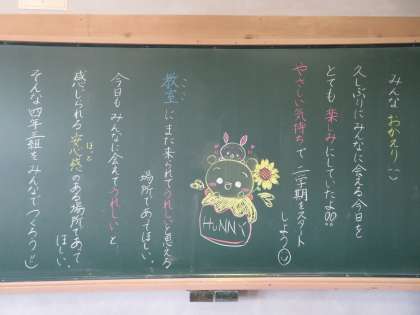 みんな おかえり
久しぶりにみんなに会える今日を
とても 楽しみにしていたよ
やさしい気持ちで 二学期をスタート
しよう
HUNNY
教室にまた来られてうれしいと思える
ここ
場所であてほしい。
今日も みんなに会えてうれしいと
感じられる 安心感のある場所であて
ほっと
ほしい。
そんな四年二組をみんなでつくろう!!